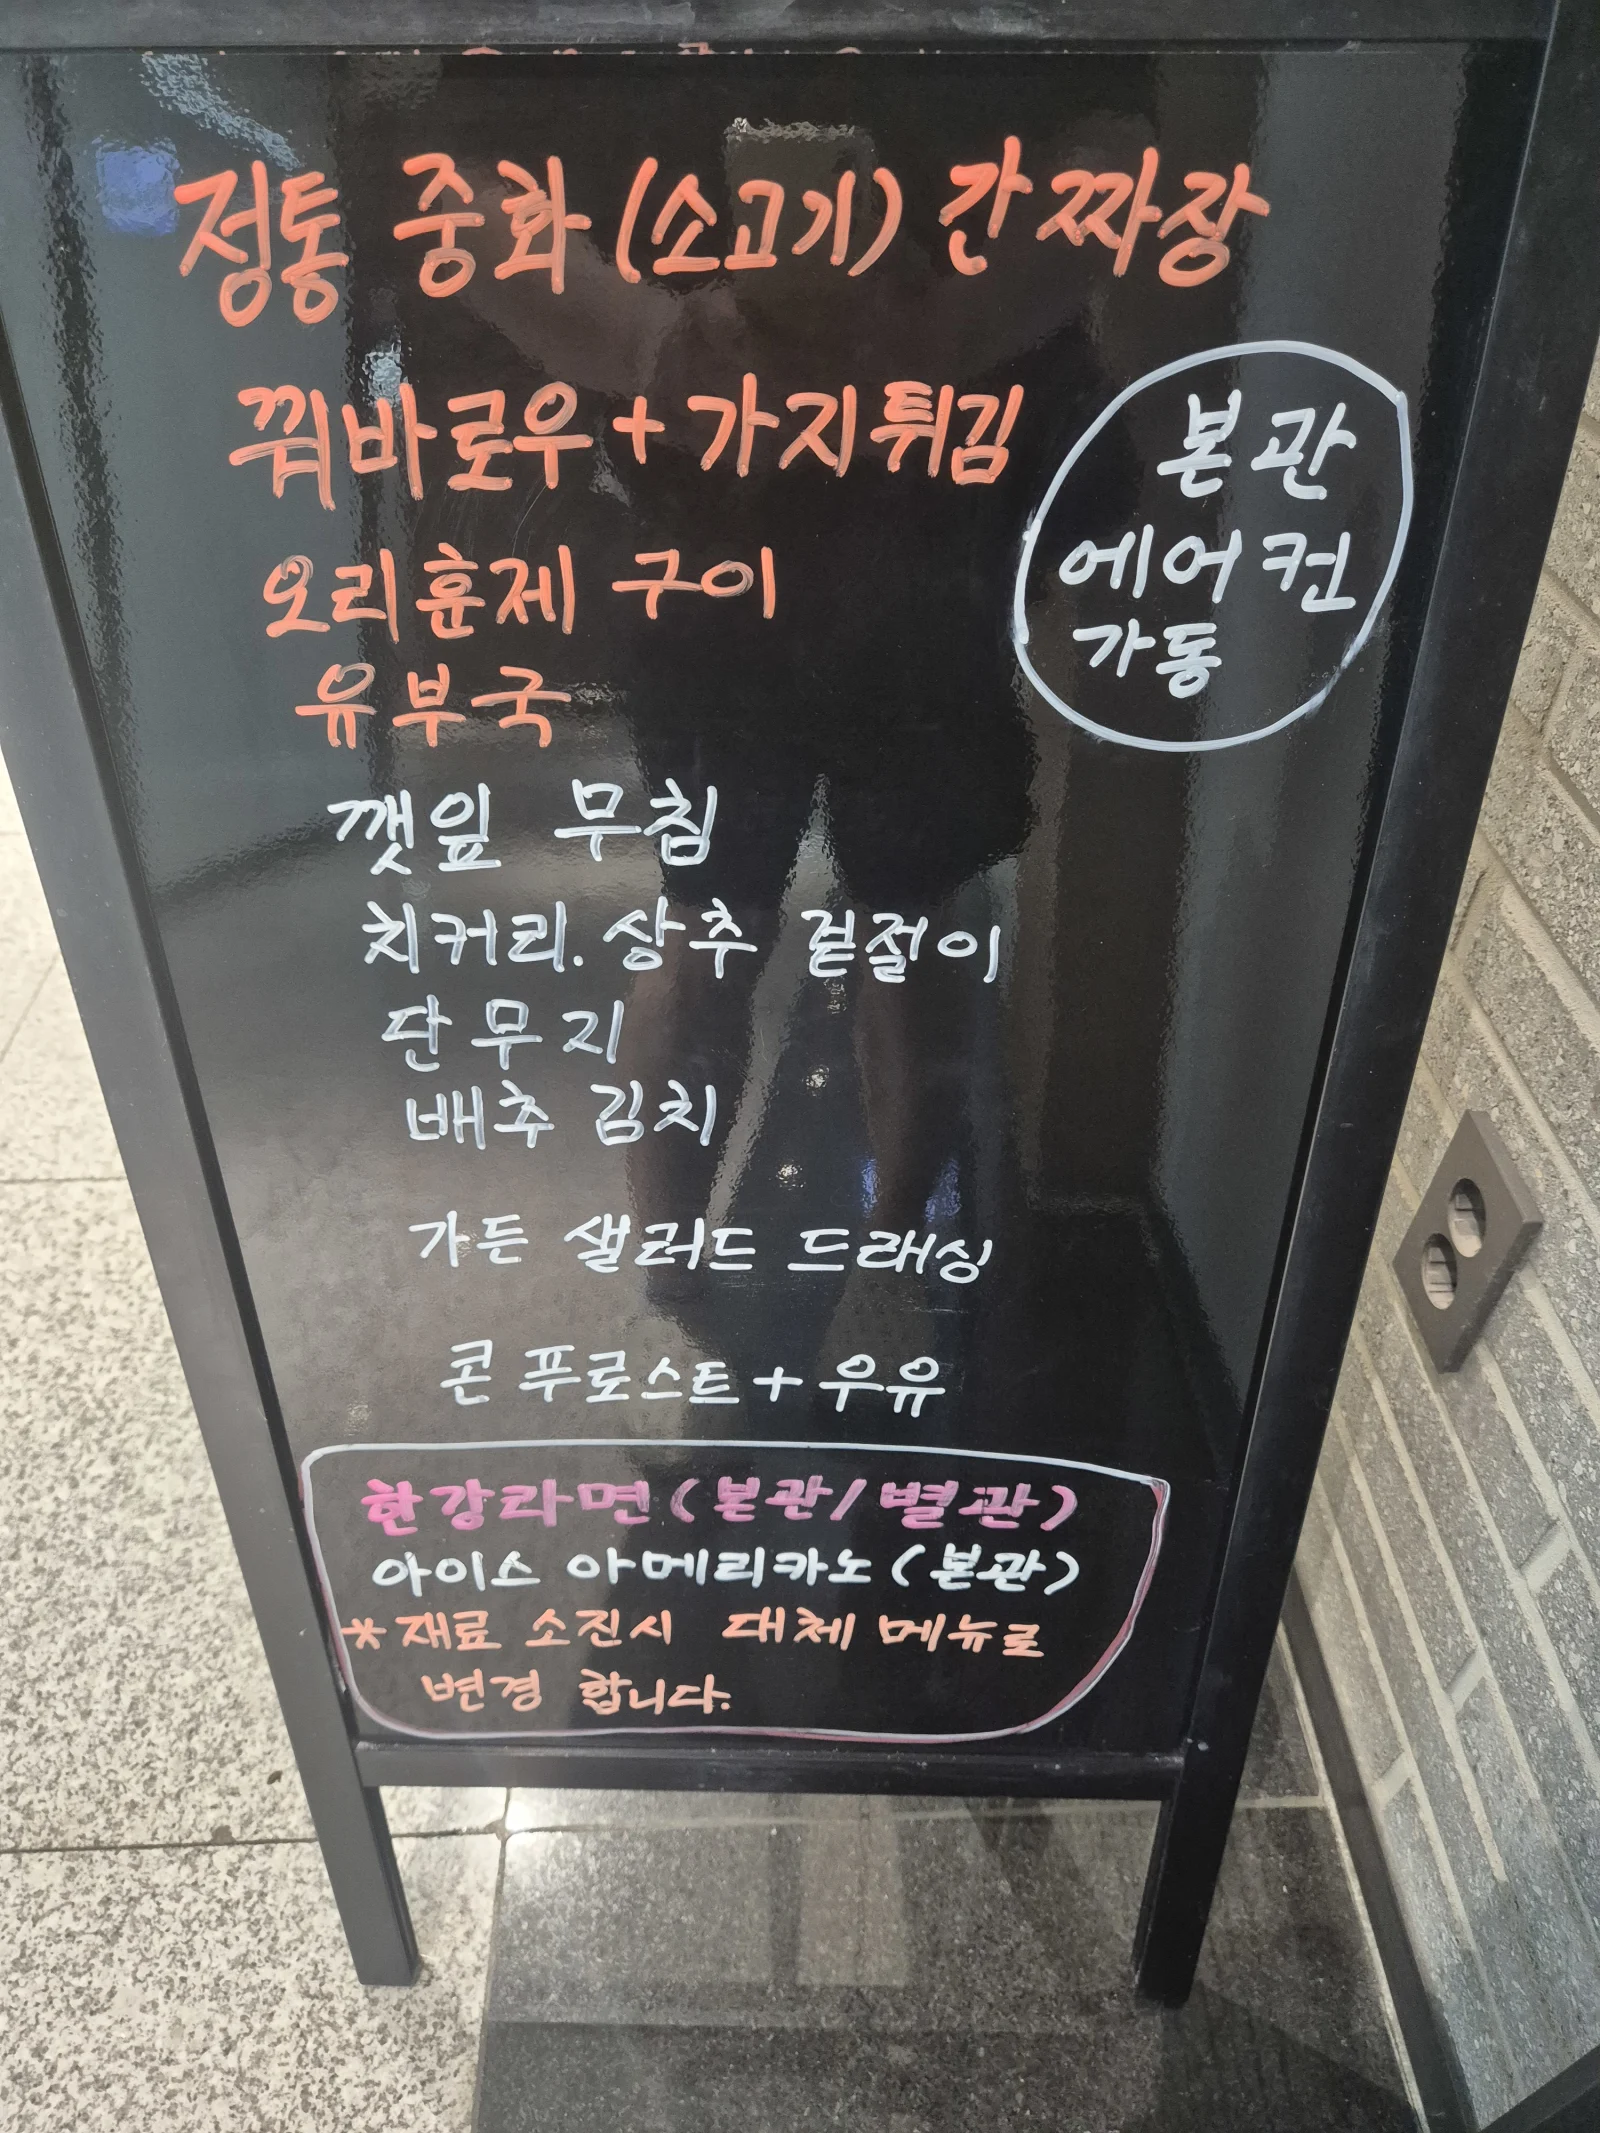 정통 중화 (소고기) 간짜장
꿔바로우 + 가지튀김
본관
에어컨
가동
오리훈제 구이
유부국
깻잎 무침
치커리. 상추 겉절이
단무지
배추 김치
가든 샐러드 드래싱
콘 푸로스트 + 우유
한강라면 (본관/별관)
아이스 아메리카노 (본관)
*재료 소진시 대체 메뉴로
변경 합니다.